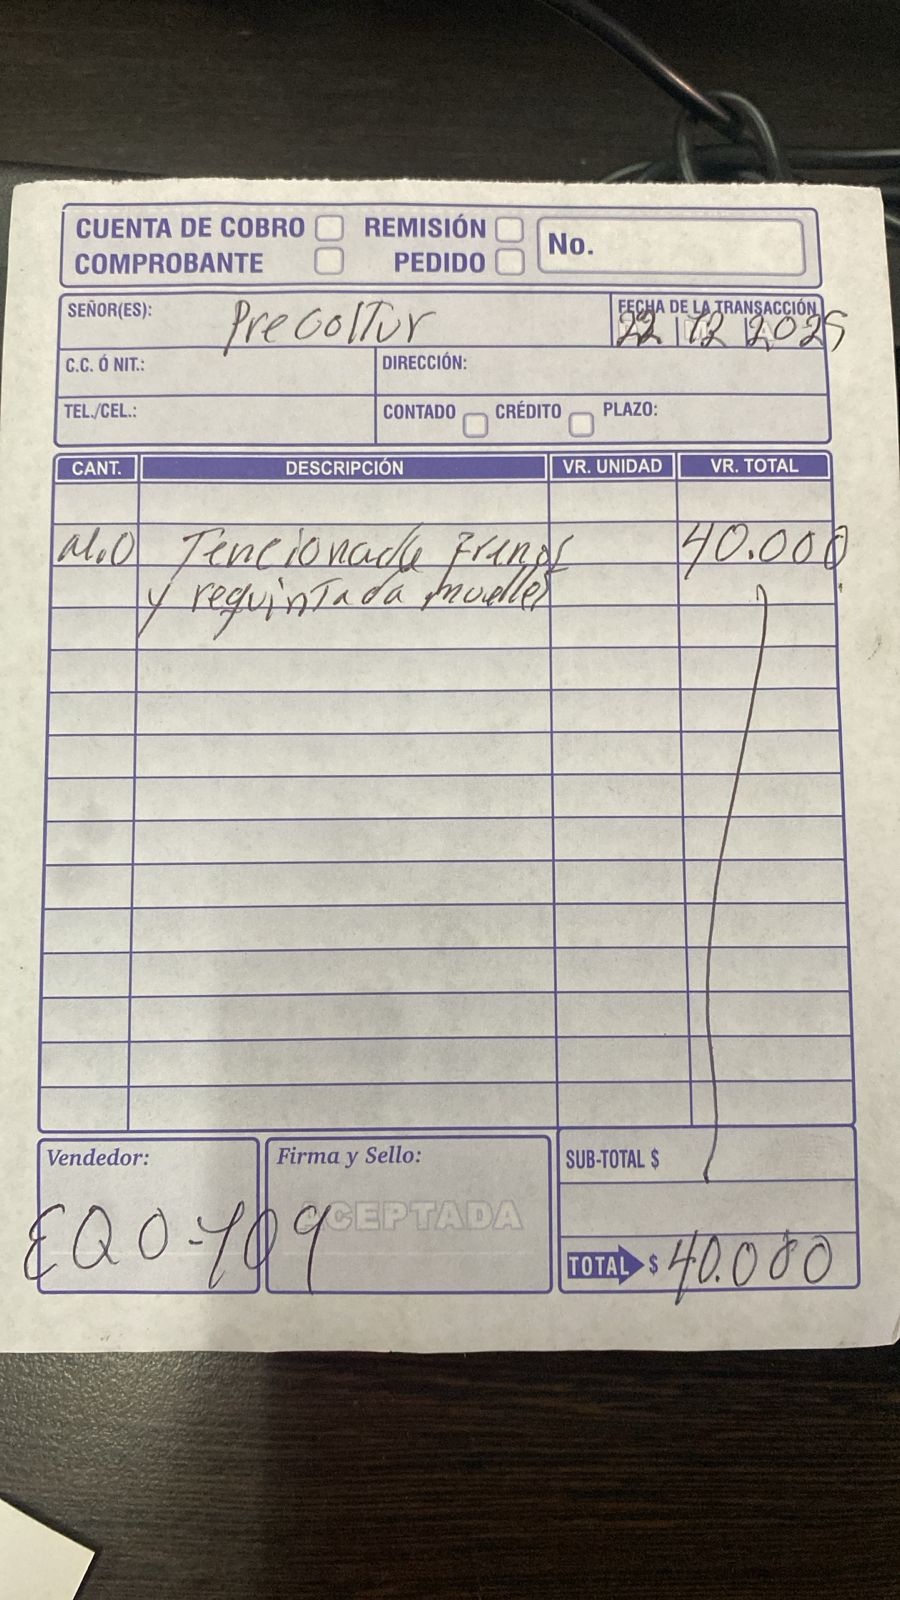 CUENTA DE COBRO REMISIÓN No.
COMPROBANTE PEDIDO
SEÑOR(ES): Precoltur FECHA DE LA TRANSACCIÓN
22 12 2025
C.C. Ó NIT.: DIRECCIÓN:
TEL./CEL.: CONTADO CRÉDITO PLAZO:
CANT. DESCRIPCIÓN VR. UNIDAD VR. TOTAL
M.O Tencionada Frenos 40.000
y requintada muelles
Vendedor: Firma y Sello: SUB-TOTAL $
ACEPTADA
EQO-709
TOTAL $ 40.000